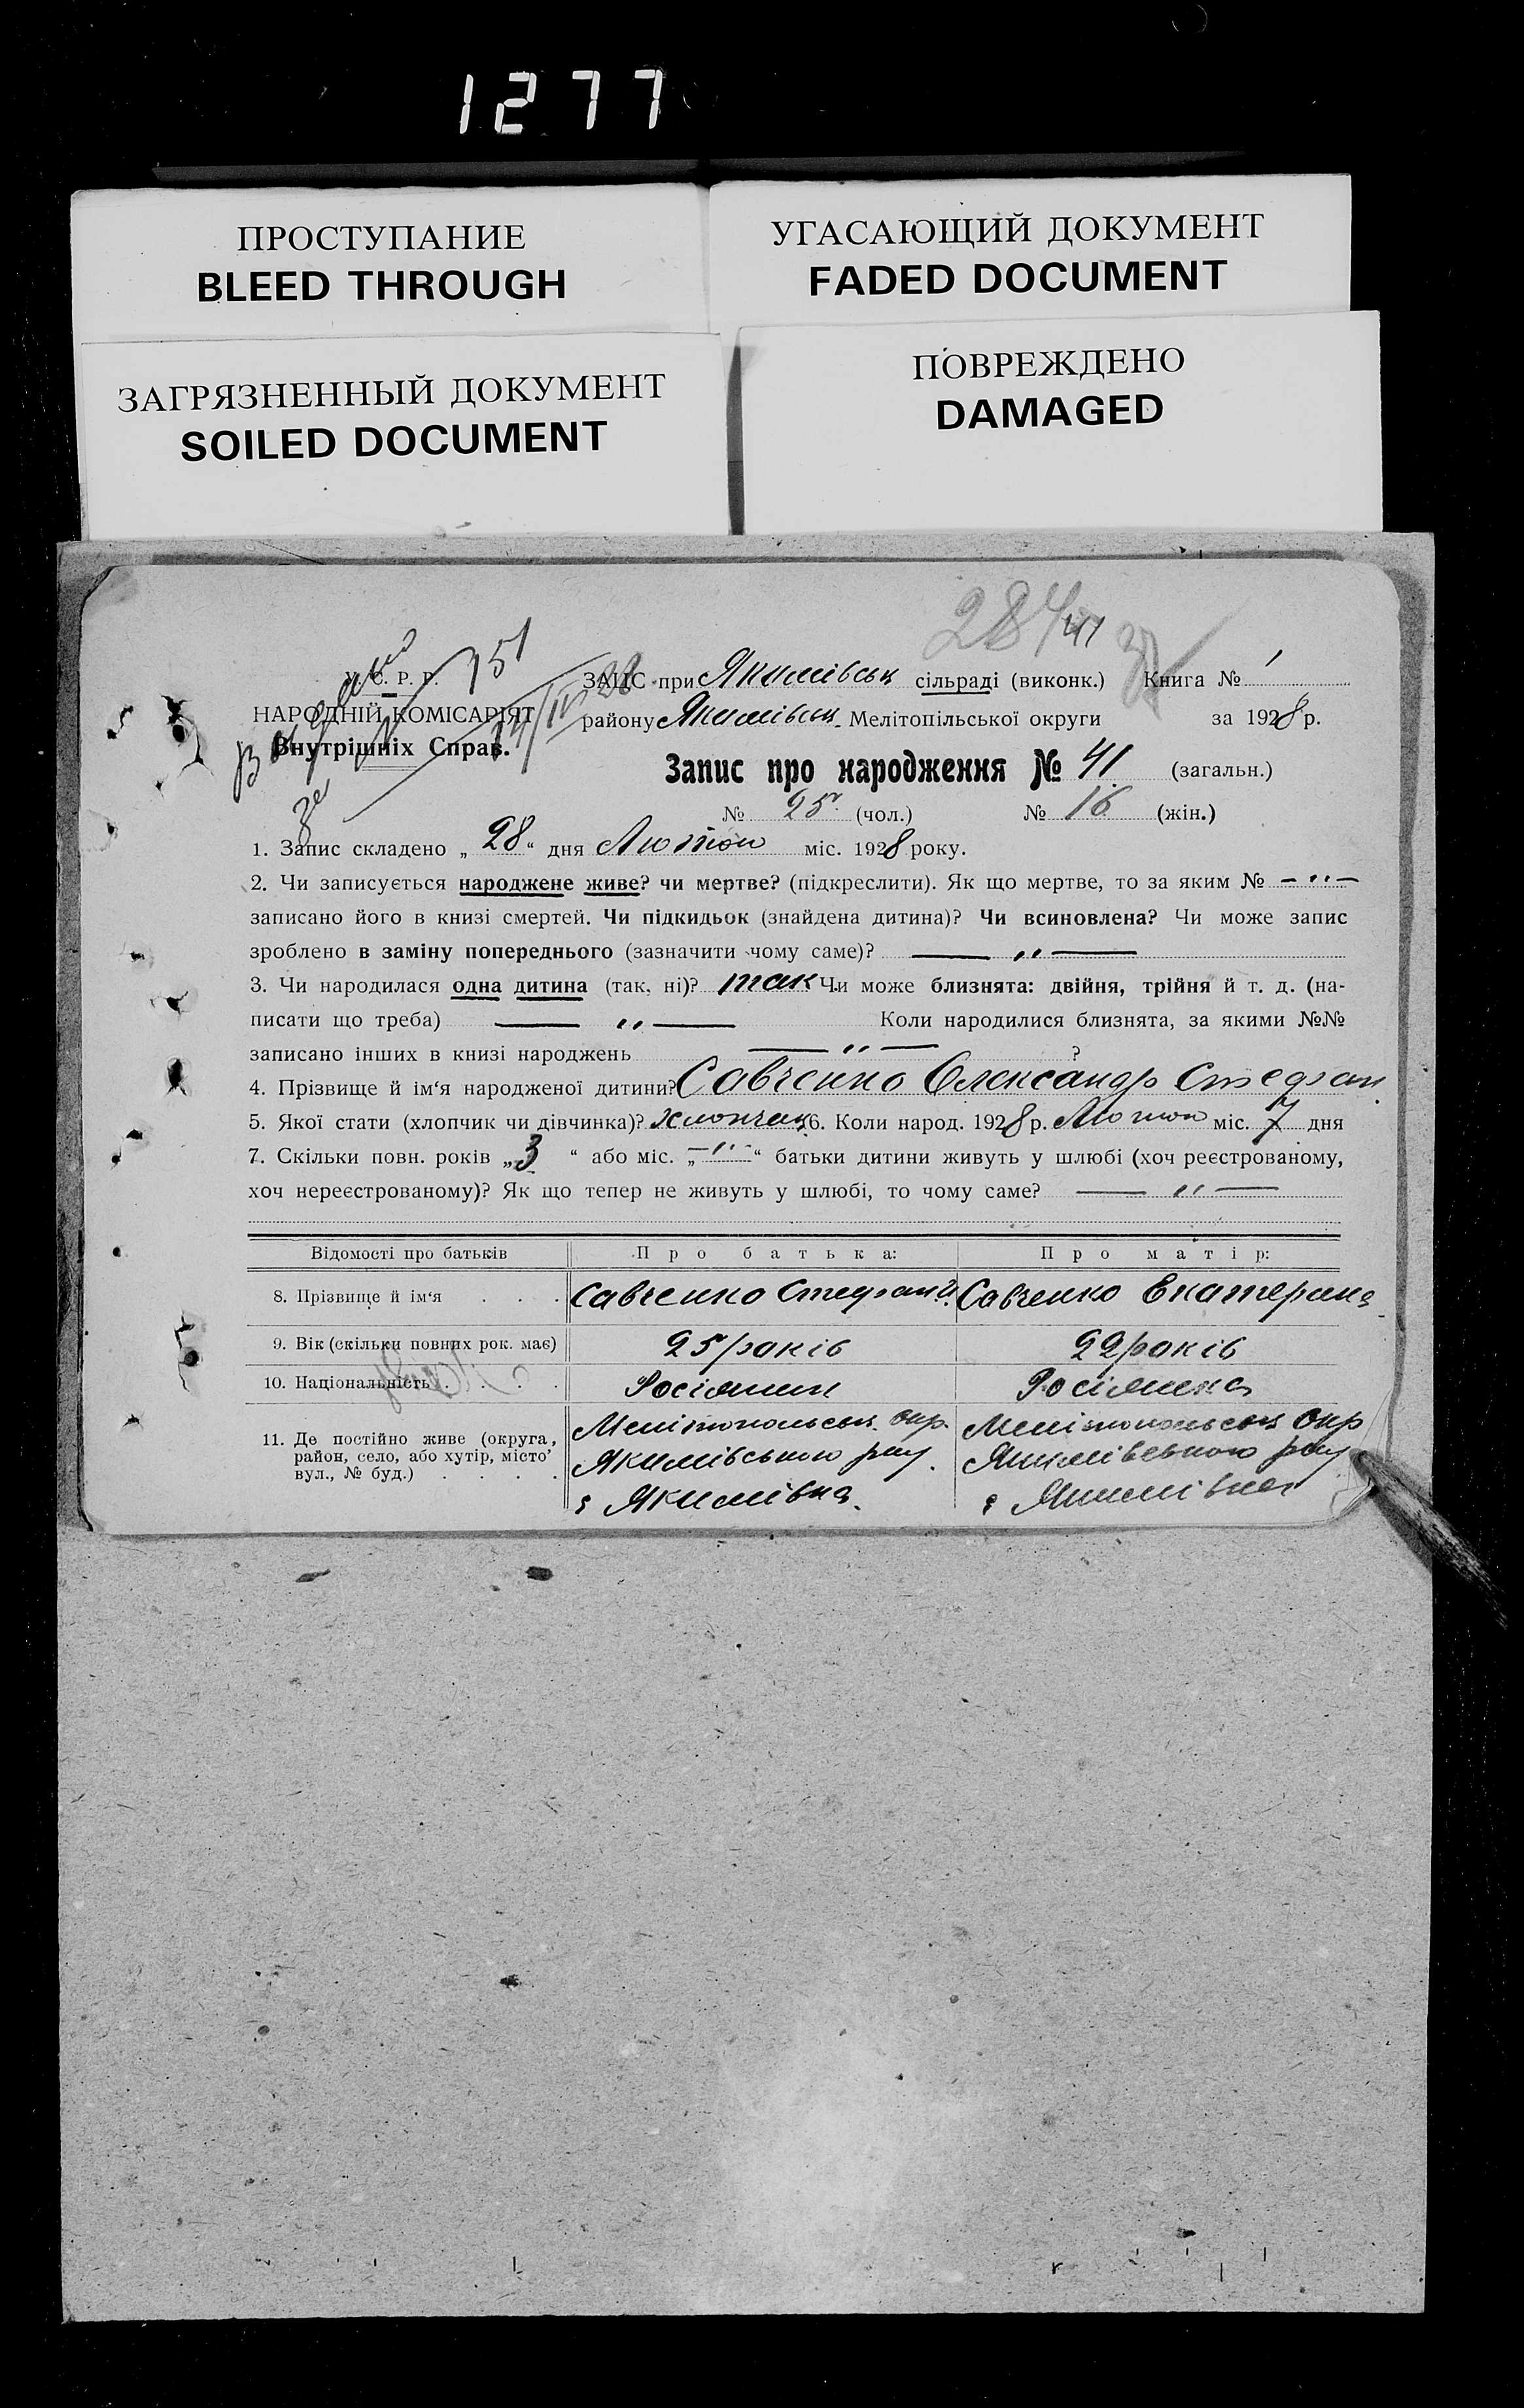 1277
ПРОСТУПАНИЕ
BLEED THROUGH
УГАСАЮЩИЙ ДОКУМЕНТ
FADED DOCUMENT
ЗАГРЯЗНЕННЫЙ ДОКУМЕНТ
SOILED DOCUMENT
ПОВРЕЖДЕНО
DAMAGED
284 41
У. С. Р. Р.
НАРОДНІЙ КОМІСАРІЯТ
Внутрішніх Справ.
ЗАЦС при Якимівськ сільраді (виконк.) Книга № 1
району Якимівськ. Мелітопільської округи за 1928 р.
Запис про народження № 41 (загальн.)
№ 25 (чол.) № 16 (жін.)
1. Запис складено „ 28 “ дня Лютого міс. 1928 року.
2. Чи записується народжене живе? чи мертве? (підкреслити). Як що мертве, то за яким № — „ —
записано його в книзі смертей. Чи підкидьок (знайдена дитина)? Чи всиновлена? Чи може запис
зроблено в заміну попереднього (зазначити чому саме)? — „ —
3. Чи народилася одна дитина (так, ні)? так Чи може близнята: двійня, трійня й т. д. (на-
писати що треба) — „ — Коли народилися близнята, за якими №№
записано інших в книзі народжень — „ — ?
4. Прізвище й ім‘я народженої дитини? Савченко Олександр Стефан
5. Якої стати (хлопчик чи дівчинка)? хлопчик 6. Коли народ. 1928 р. Лютого міс. 7 дня
7. Скільки повн. років „ 3 “ або міс. „ — „ — “ батьки дитини живуть у шлюбі (хоч реєстрованому,
хоч нереєстрованому)? Як що тепер не живуть у шлюбі, то чому саме? — „ —
Відомості про батьків Про батька: Про матір:
8. Прізвище й ім‘я . . . Савченко Стефан И. Савченко Екатерина
9. Вік (скільки повних рок. має) 25 років 22 років
10. Національність . . . . Росіянин Росіянка
11. Де постійно живе (округа,
район, село, або хутір, місто’
вул., № буд.) . . . .
Мелітопольськ. окр.
Якимівського рай.
с Якимівка.
Мелітопольськ окр
Якимівського рай
с Якимівка